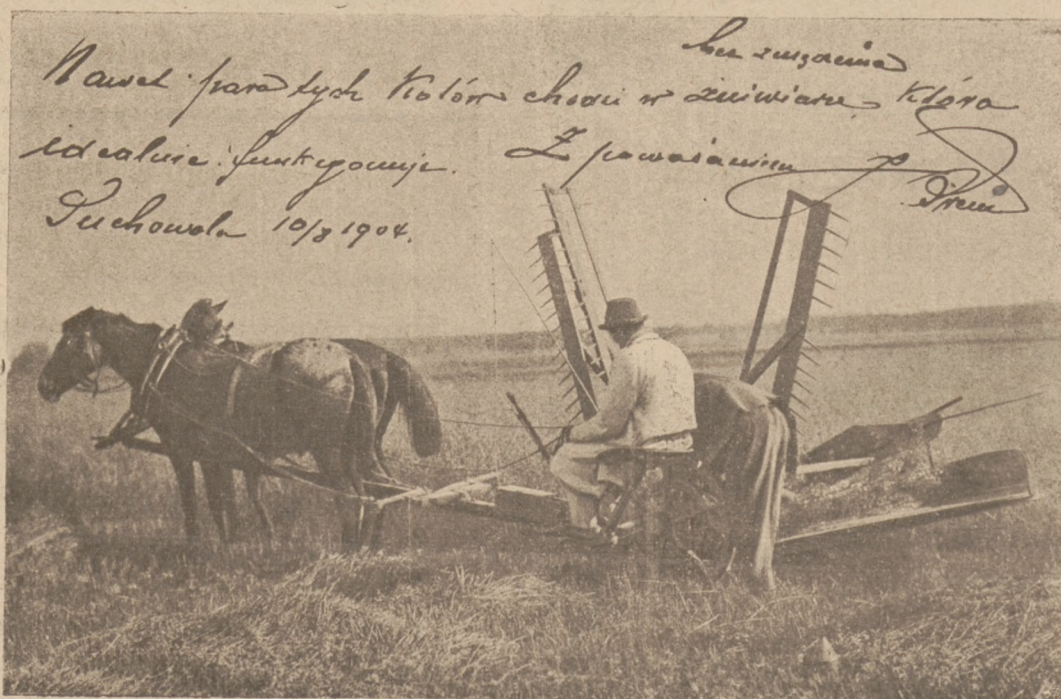 bez zmęczenia
Nawet para tych Kotów chodzi w żniwiarce, Która
idealnie funkcyonuje. Z poważaniem
Suchowola 10/8 1904.